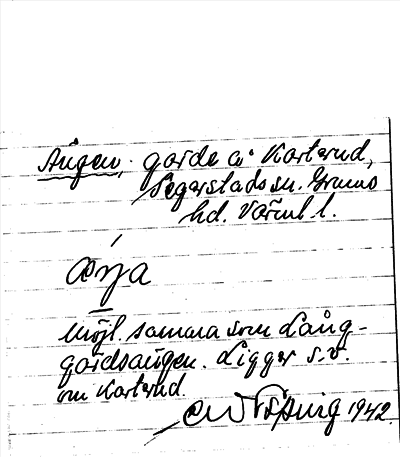 Ängen, gärde å Karterud,
Segerstads sn. Grums
hd. Värml l.
æŋa
Möjl. samma som Lång-
gärdsängen. Ligger s.v.
om Karterud.
1942.